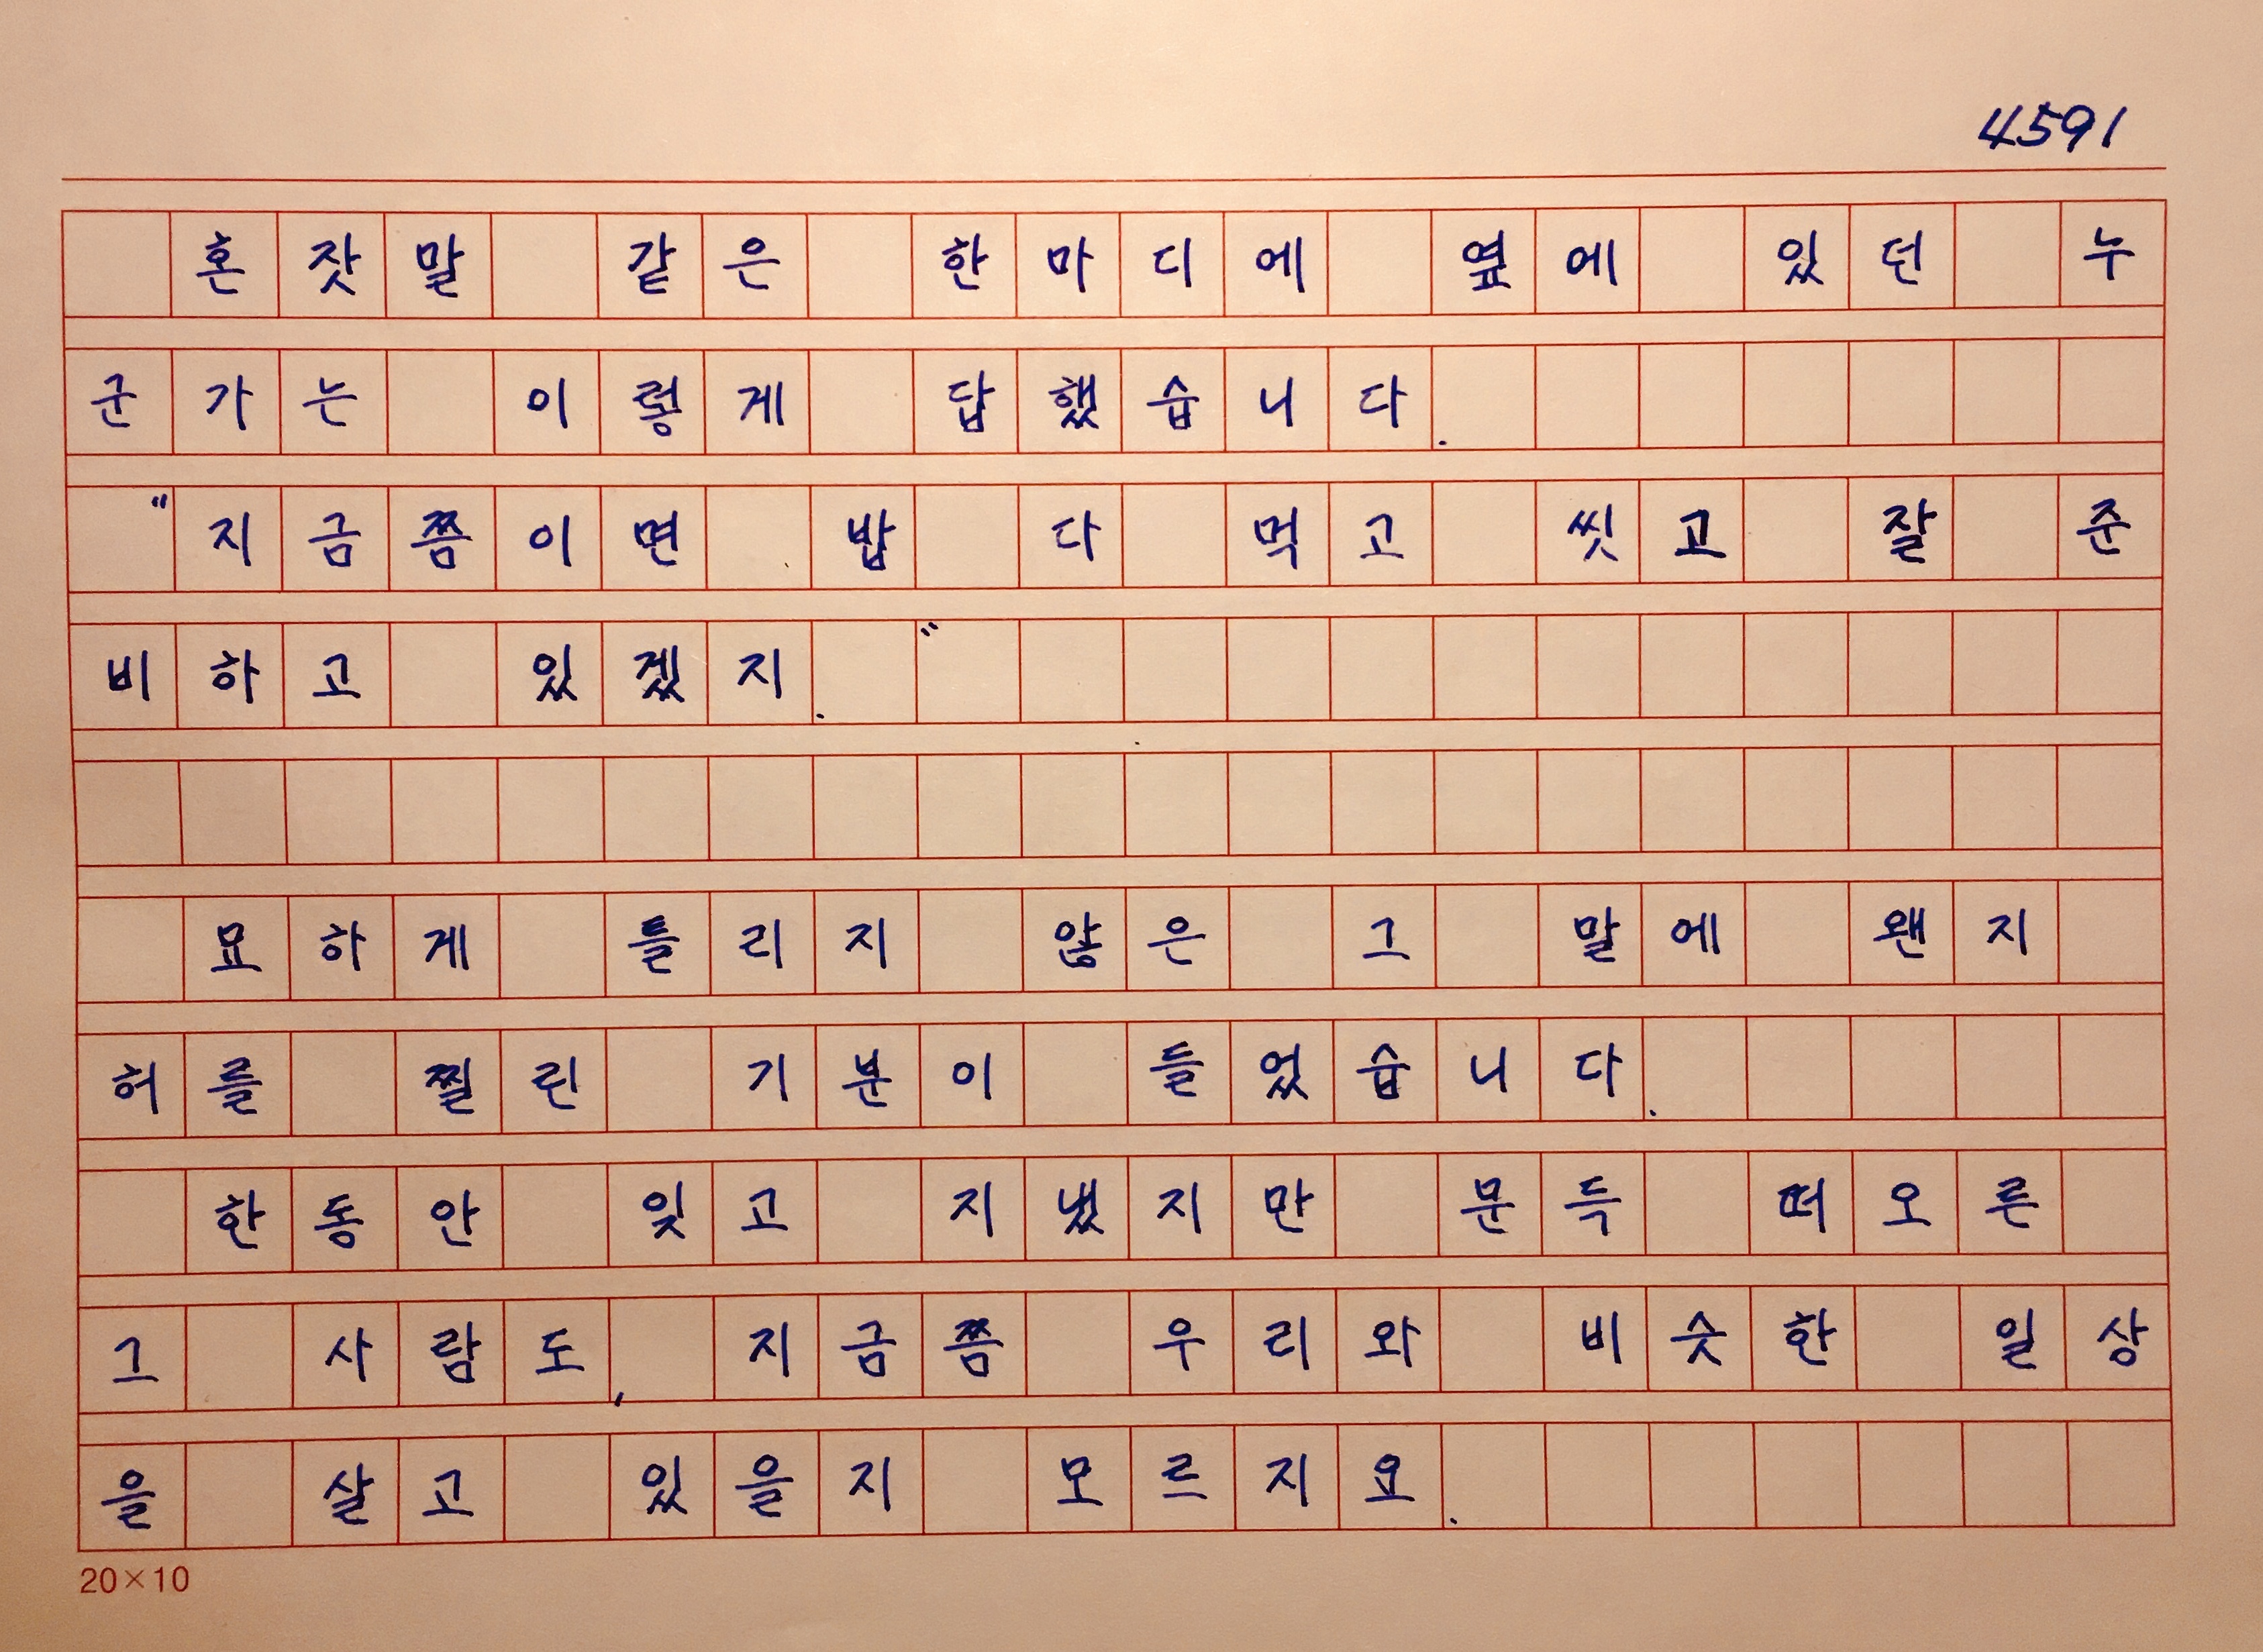 4591
혼잣말 같은 한마디에 옆에 있던 누
군가는 이렇게 답했습니다.
"지금쯤이면 밥 다 먹고 씻고 잘 준
비하고 있겠지."
묘하게 틀리지 않은 그 말에 왠지
허를 찔린 기분이 들었습니다.
한동안 잊고 지냈지만 문득 떠오른
그 사람도, 지금쯤 우리와 비슷한 일상
을 살고 있을지 모르지요.
20×10